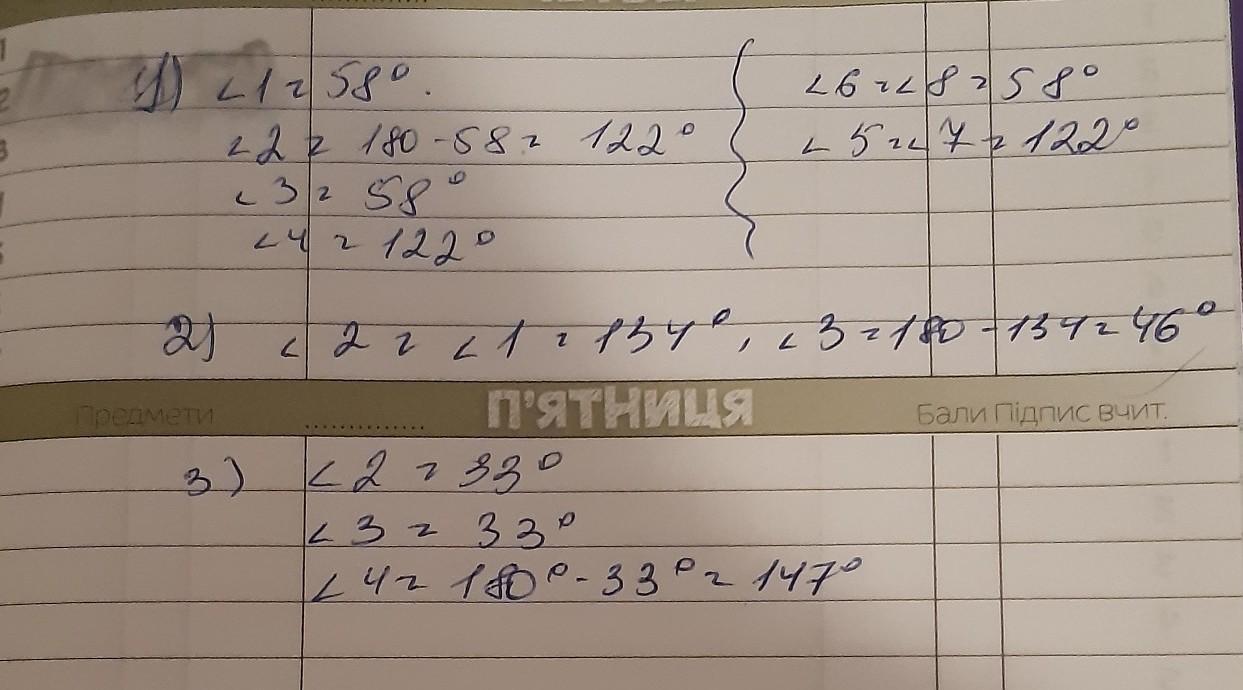 1) ∠1 = 58°.
∠2 = 180 - 58 = 122°
∠3 = 58°
∠4 = 122°
∠6 = ∠8 = 58°
∠5 = ∠7 = 122°
2) ∠2 = ∠1 = 134°, ∠3 = 180 - 134 = 46°
Предмети ПʼЯТНИЦЯ Бали Підпис вчит.
3) ∠2 = 33°
∠3 = 33°
∠4 = 180° - 33° = 147°